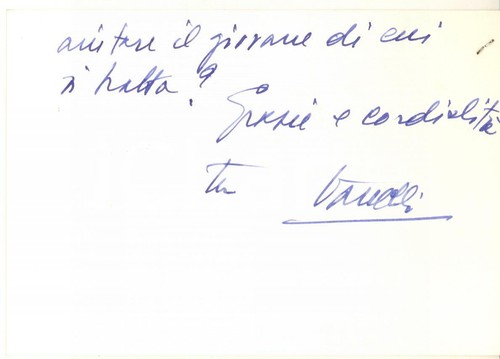 aiutare il giovane di cui
si tratta?
Grazie e cordialità
tuo